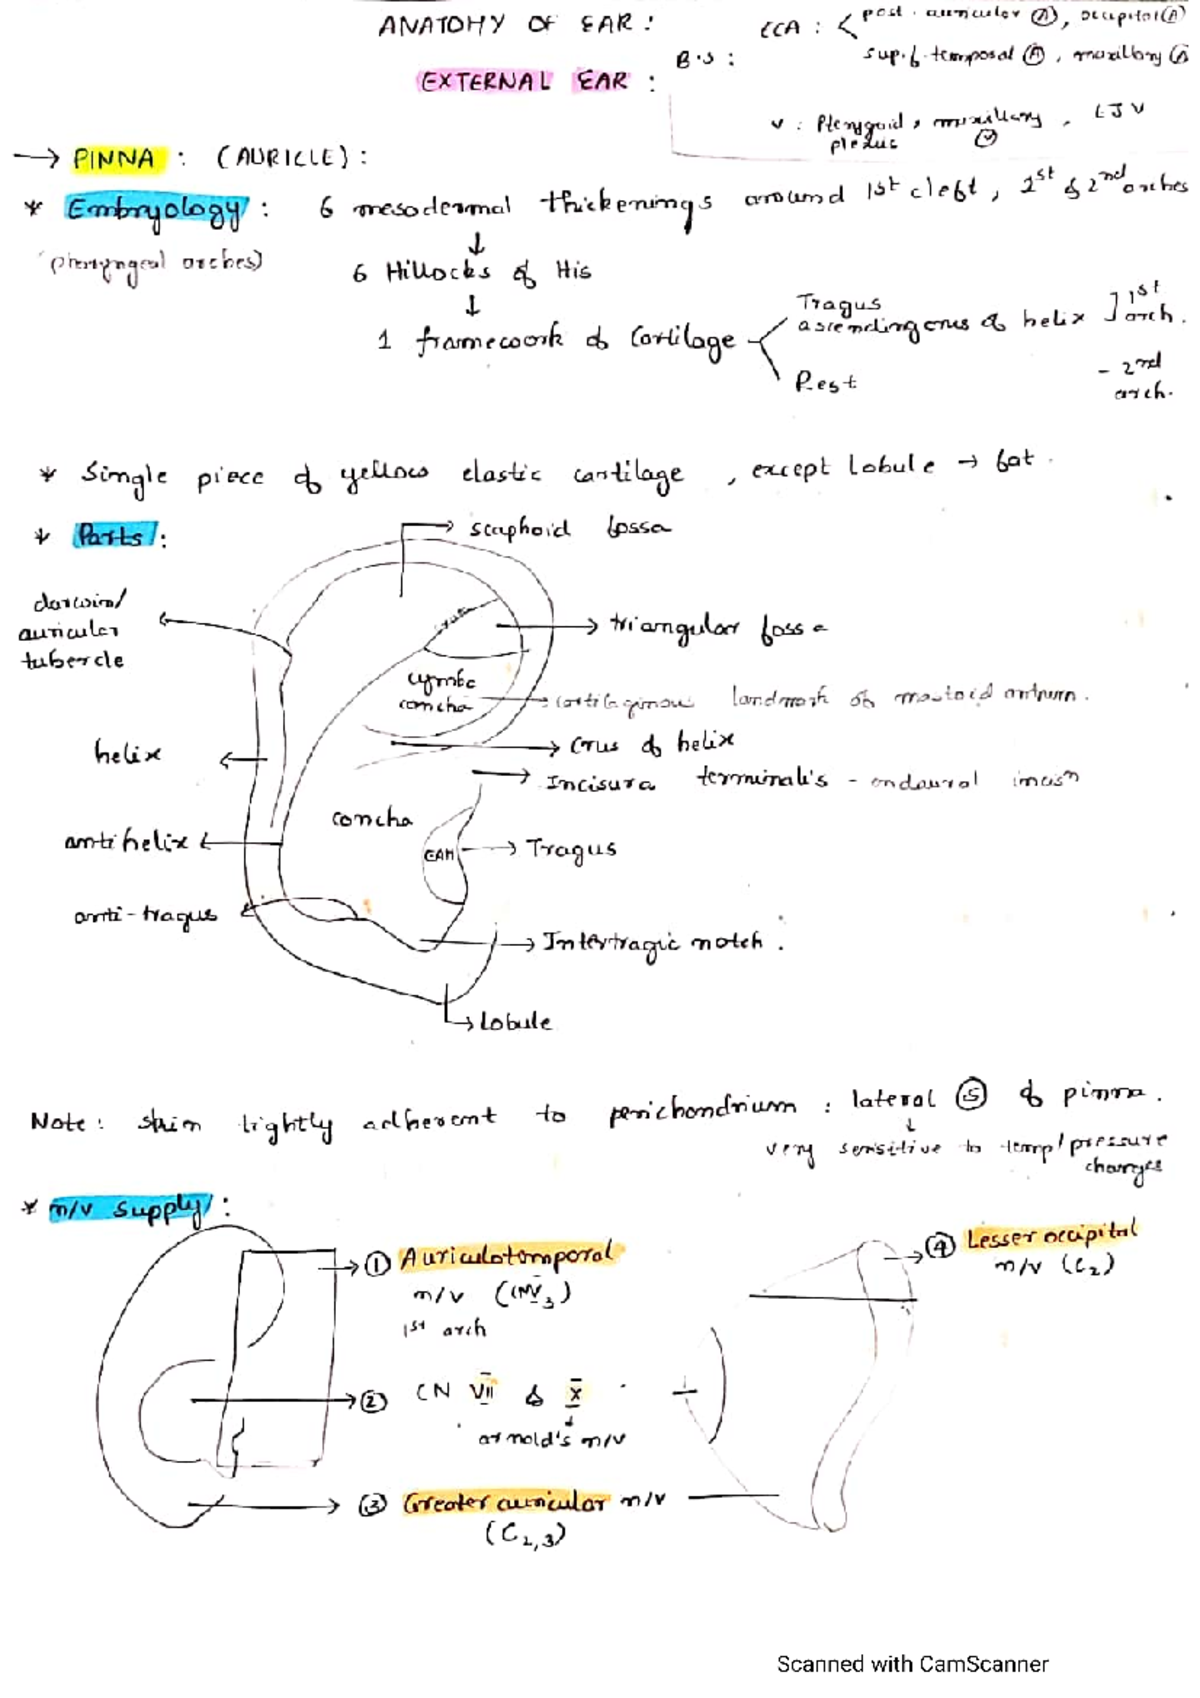 ANATOMY OF EAR :
ECA : < post. auricular (A), occipital (A)
B.S :
sup.f. temporal (A), maxillary (A)
EXTERNAL EAR :
v : Pterygoid, maxillary (V), EJV
plexus
→ PINNA : (AURICLE) :
* Embryology : 6 mesodermal thickenings around 1st cleft, 1st & 2nd arches
(pharyngeal arches)
↓
6 Hillocks of His
↓
Tragus
ascending crus of helix ] 1st arch.
1 framework of cartilage <
Rest - 2nd arch.
* Single piece of yellow elastic cartilage, except lobule → fat.
* Parts :
→ scaphoid fossa
darwin/
auricular
tubercle
→ triangular fossa
cymba
concha
→ cartilaginous landmark of mastoid antrum.
→ crus of helix
helix
→ Incisura terminalis - endaural incisn
concha
antihelix
EAM
→ Tragus
anti-tragus
→ Intertragic notch.
→ lobule
Note : skin tightly adherent to perichondrium : lateral (S) of pinna.
↓
very sensitive to temp/pressure
changes
* n/v supply :
→ ① Auriculotemporal
n/v (CNV₃)
1st arch
→ ④ Lesser occipital
n/v (C₂)
→ ② CN VII & X
↓
arnold's n/v
→ ③ Greater auricular n/v
(C₂,₃)
Scanned with CamScanner